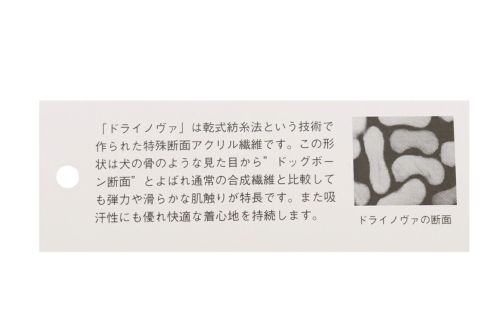 「ドライノヴァ」は乾式紡糸法という技術で
作られた特殊断面アクリル繊維です。この形
状は犬の骨のような見た目から”ドッグボー
ン断面”とよばれ通常の合成繊維と比較して
も弾力や滑らかな肌触りが特長です。また吸
汗性にも優れ快適な着心地を持続します。
ドライノヴァの断面